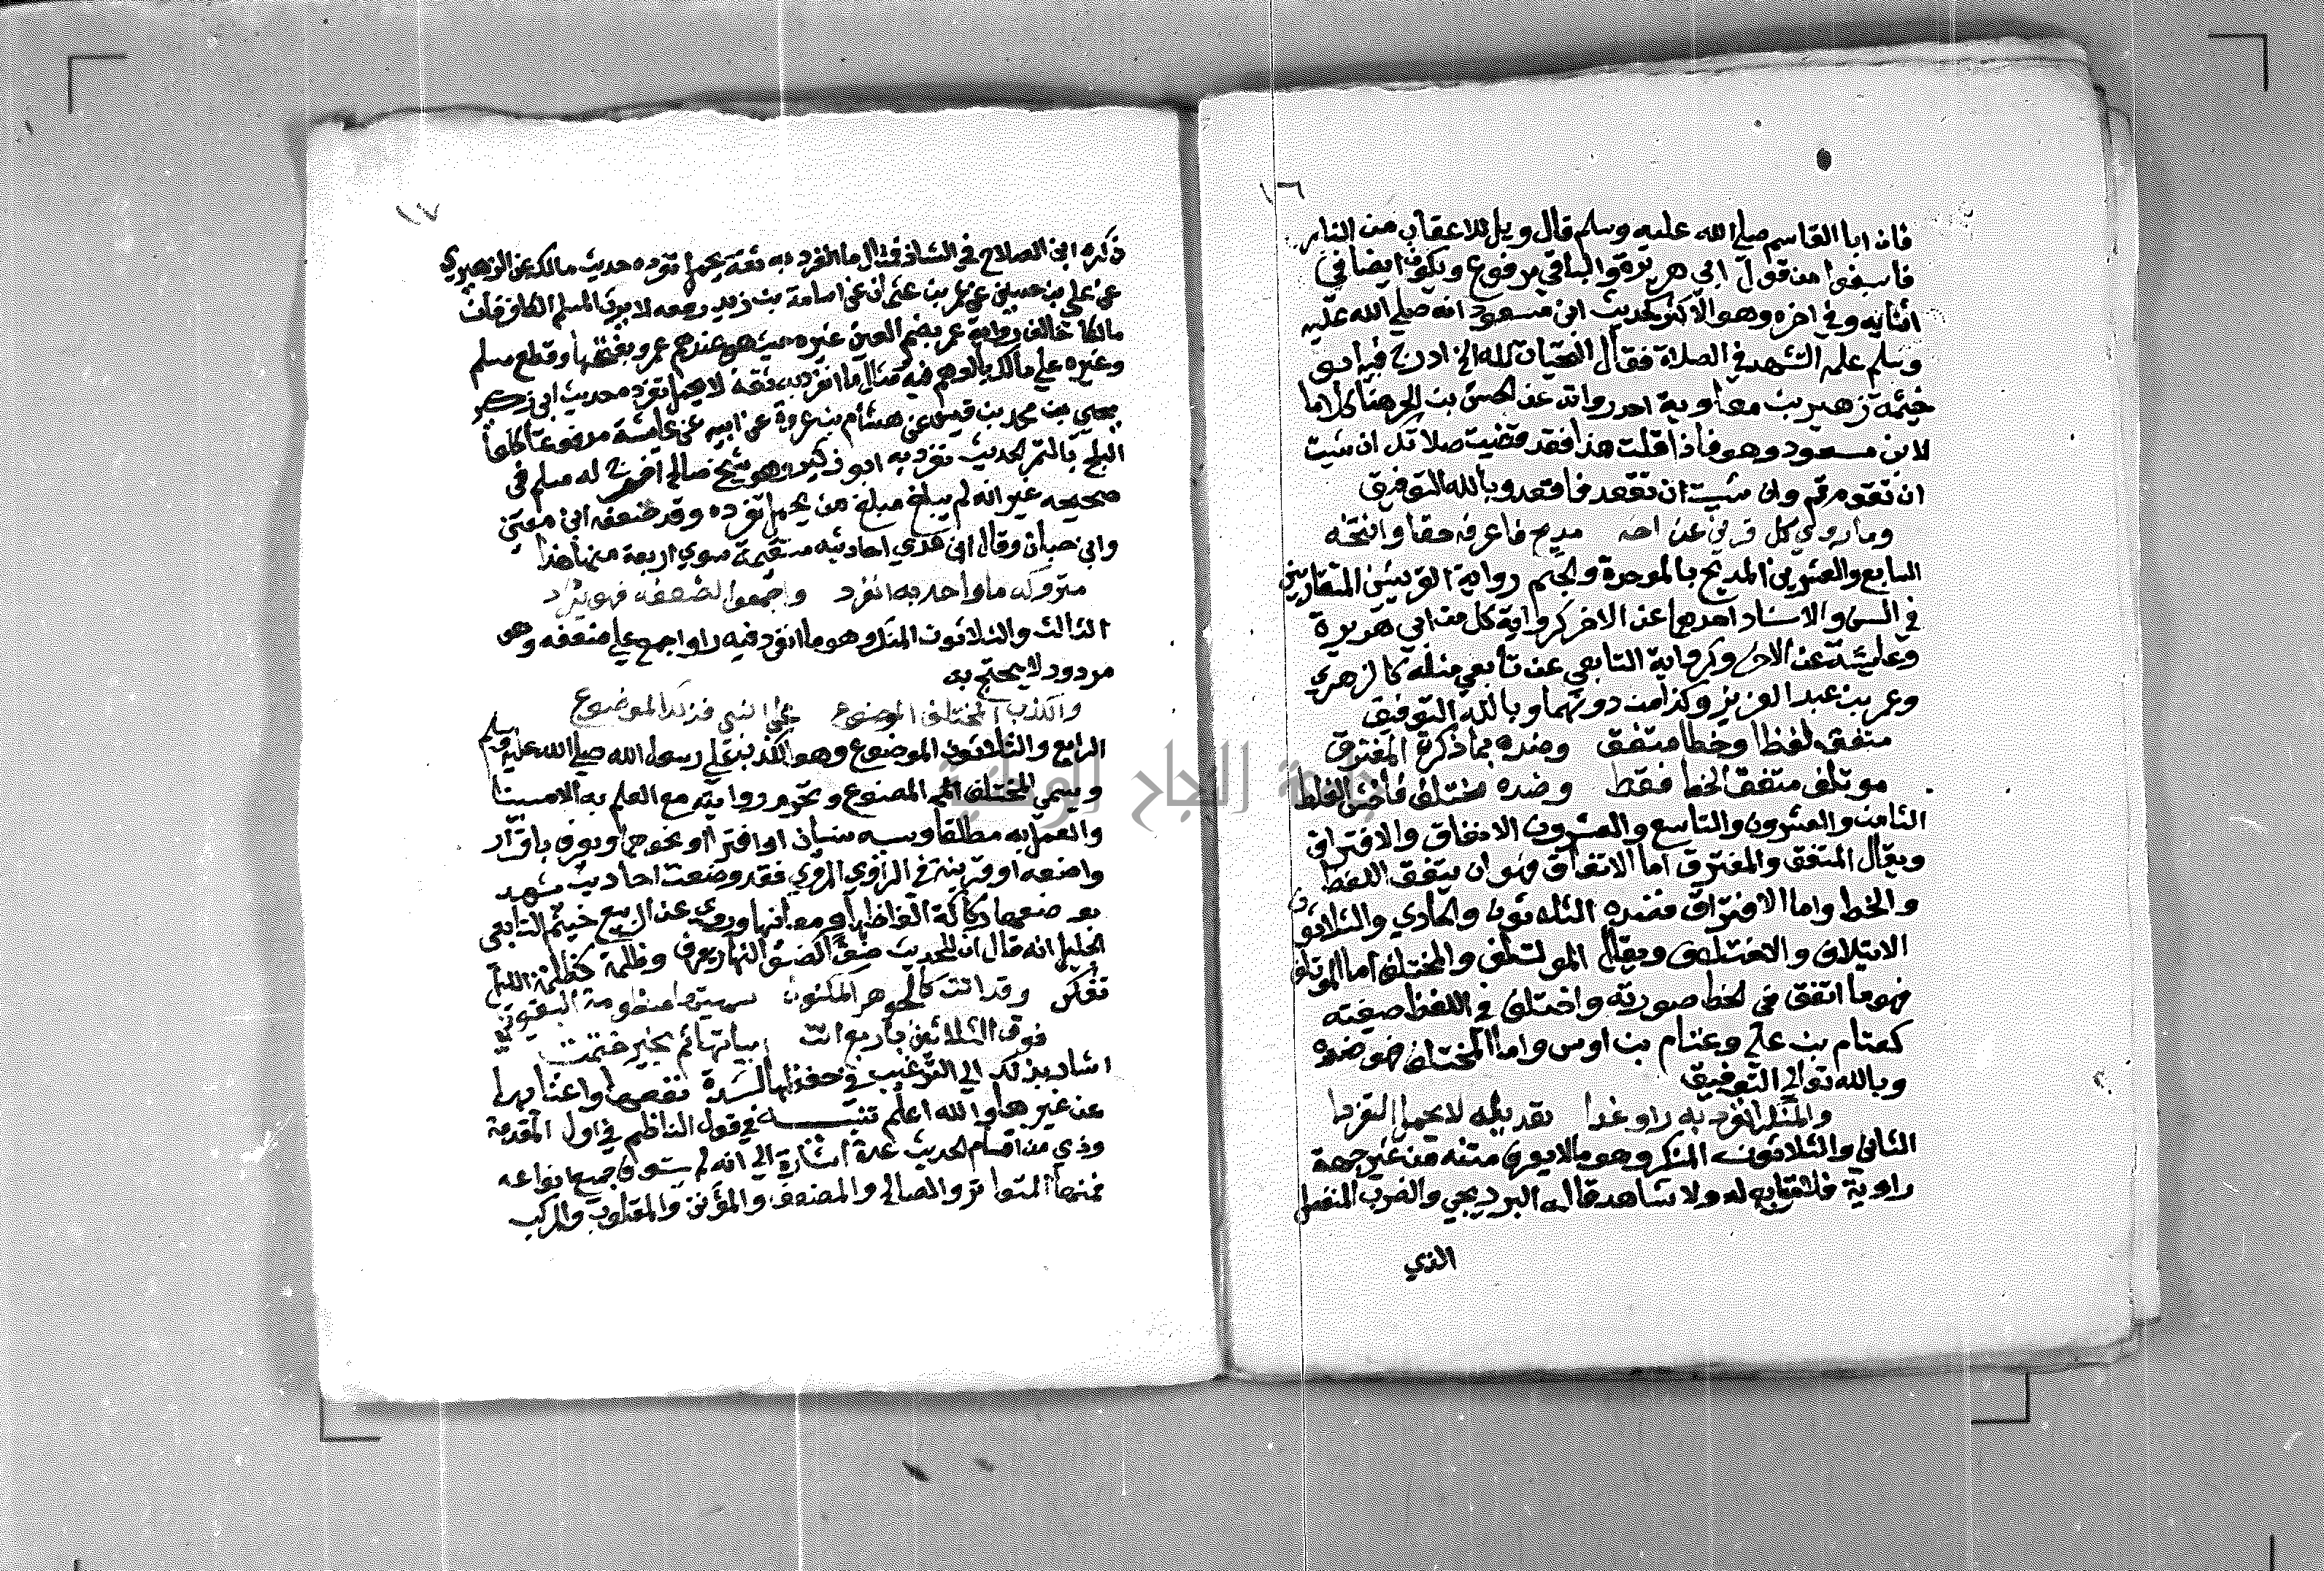 ١٦
فان ابا القاسم صلي الله عليه وسلم قال ويل للاعقاب من النار
فاسبغوا من قول ابي هريرة والباقي مرفوع ويكون ايضا في
اثنايه وفي اخره وهو الاكثر كحديث ابن مسعود انه صلي الله عليه
وسلم علمه التشهد في الصلاة فقال التحيات لله الخ ادرج فيه ابو
خيثمة زهير بن معاوية احد رواته عن الحسن بن الحر هنا كلاما
لابن مسعود وهو فاذا قلت هذا فقد قضيت صلاتك ان شيت
ان تقوم فقم وان شيت ان تقعد فاقعد وبالله التوفيق
وما روي كل قرين عن اخه مدبج فاعرفه حقا وانتخه
السابع والعشرين المدبج بالموحدة والجيم رواية القرينين المتقاربين
في السن والاسناد احدهما عن الاخر كرواية كل من ابي هريرة
وعايشة عن الاخر وكرواية التابعي عن تابعي مثله كالزهري
وعمر بن عبد العزيز وكذا من دونهما وبالله التوفيق
متفق لفظا وخطا متفق وضده بما ذكرة المفترق
موتلف متفق الخط فقط وضده مختلف فاخش الغلط
الثامن والعشرون والتاسع والعشرون الاتفاق والافتراق
ويقال المتفق والمفترق اما الاتفاق فهو ان يتفق اللفظ
والخط واما الافتراق فضده الثلاثون والحادي والثلاثون
الايتلاف والاختلاف ويقال الموتلف والمختلف اما الموتلف
فهو ما اتفق في الخط صورته واختلف في اللفظ صيغته
كعثام بن علي وغنام بن اوس واما المختلف فهو ضده
وبالله توالي التوفيق
والمنكر الفرد به راو غدا تعديله لا يحمل التفردا
الثاني والثلاثون المنكر وهو مالا يعرف متنه من غير جهة
راويه فلا متابع له ولا شاهد قاله البرديجي والضرب المنفصل
الذي
١٧
ذكره ابن الصلاح في الشاذ فمثال ما انفرد به ثقة يحمل تفرده حديث مالك عن الزهري
عن علي بن حسين عن عمر بن عثمان عن اسامة بن زيد رفعه لا يرث المسلم الكافر فان
مالكا خالف رواية عمر بضم العين غيره حيث هو عندهم عمرو بفتحها وقطع مسلم
وغيره علي مالك بالوهم فيه مثال ما انفرد به ثقة لا يحمل تفرده حديث ابي زكير
يحيي بن محمد بن قيس عن هشام بن عروة عن ابيه عن عايشة مرفوعا كلوا
البلح بالتمر الحديث تفرد به ابو زكير وهو شيخ صالح اخرج له مسلم في
صحيحه غير انه لم يبلغ مبلغ من يحمل تفرده وقد ضعفه ابن معين
وابن حبان وقال ابن عدي احاديثه مستقيمة سوي اربعة منها هذا
متروكه ما واحد به انفرد واجمعوا لضعفه فهو يرد
الثالث والثلاثون المتروك وهو ما انفرد فيه راو اجمع علي ضعفه وهو
مردود لا يحتج به
والكذب المختلق الموضوع علي النبي فذلك الموضوع
الرابع والثلاثون الموضوع وهو الكذب علي رسول الله صلي الله عليه وسلم
ويسمي المختلق المصنوع وتحرم روايته مع العلم به الا مبينا
والعمل به مطلقا وسببه نسيان او افترا او نحوهما ويعرف باقرار
واضعه او قرينة في الراوي المروي فقد وضعت احاديث يشهد
بوضعها ركاكة الفاظها او معانيها وروي عن الربيع خيثم التابعي
الجليل انه قال ان للحديث ضوءا كضوء النهار يعرف وظلمة كظلمة الليل
تنكر وقد اتت كالجوهر المكنون سميتها منظومة البيقوني
فوق الثلاثين باربع اتت ابياتها ثم بخير ختمت
اشار بذلك الي الترغيب في حفظها لشدة نفعها واغنائها
عن غيرها والله اعلم تنبيه في قول الناظم في اول المقدمة
وذي من اقسام الحديث عدة اشارة الي انه لم يستوف جميع انواعه
فمنها المتواتر والصالح والمضعف والمؤنن والمقلوب والمركب
جامعة النجاح الوطنية